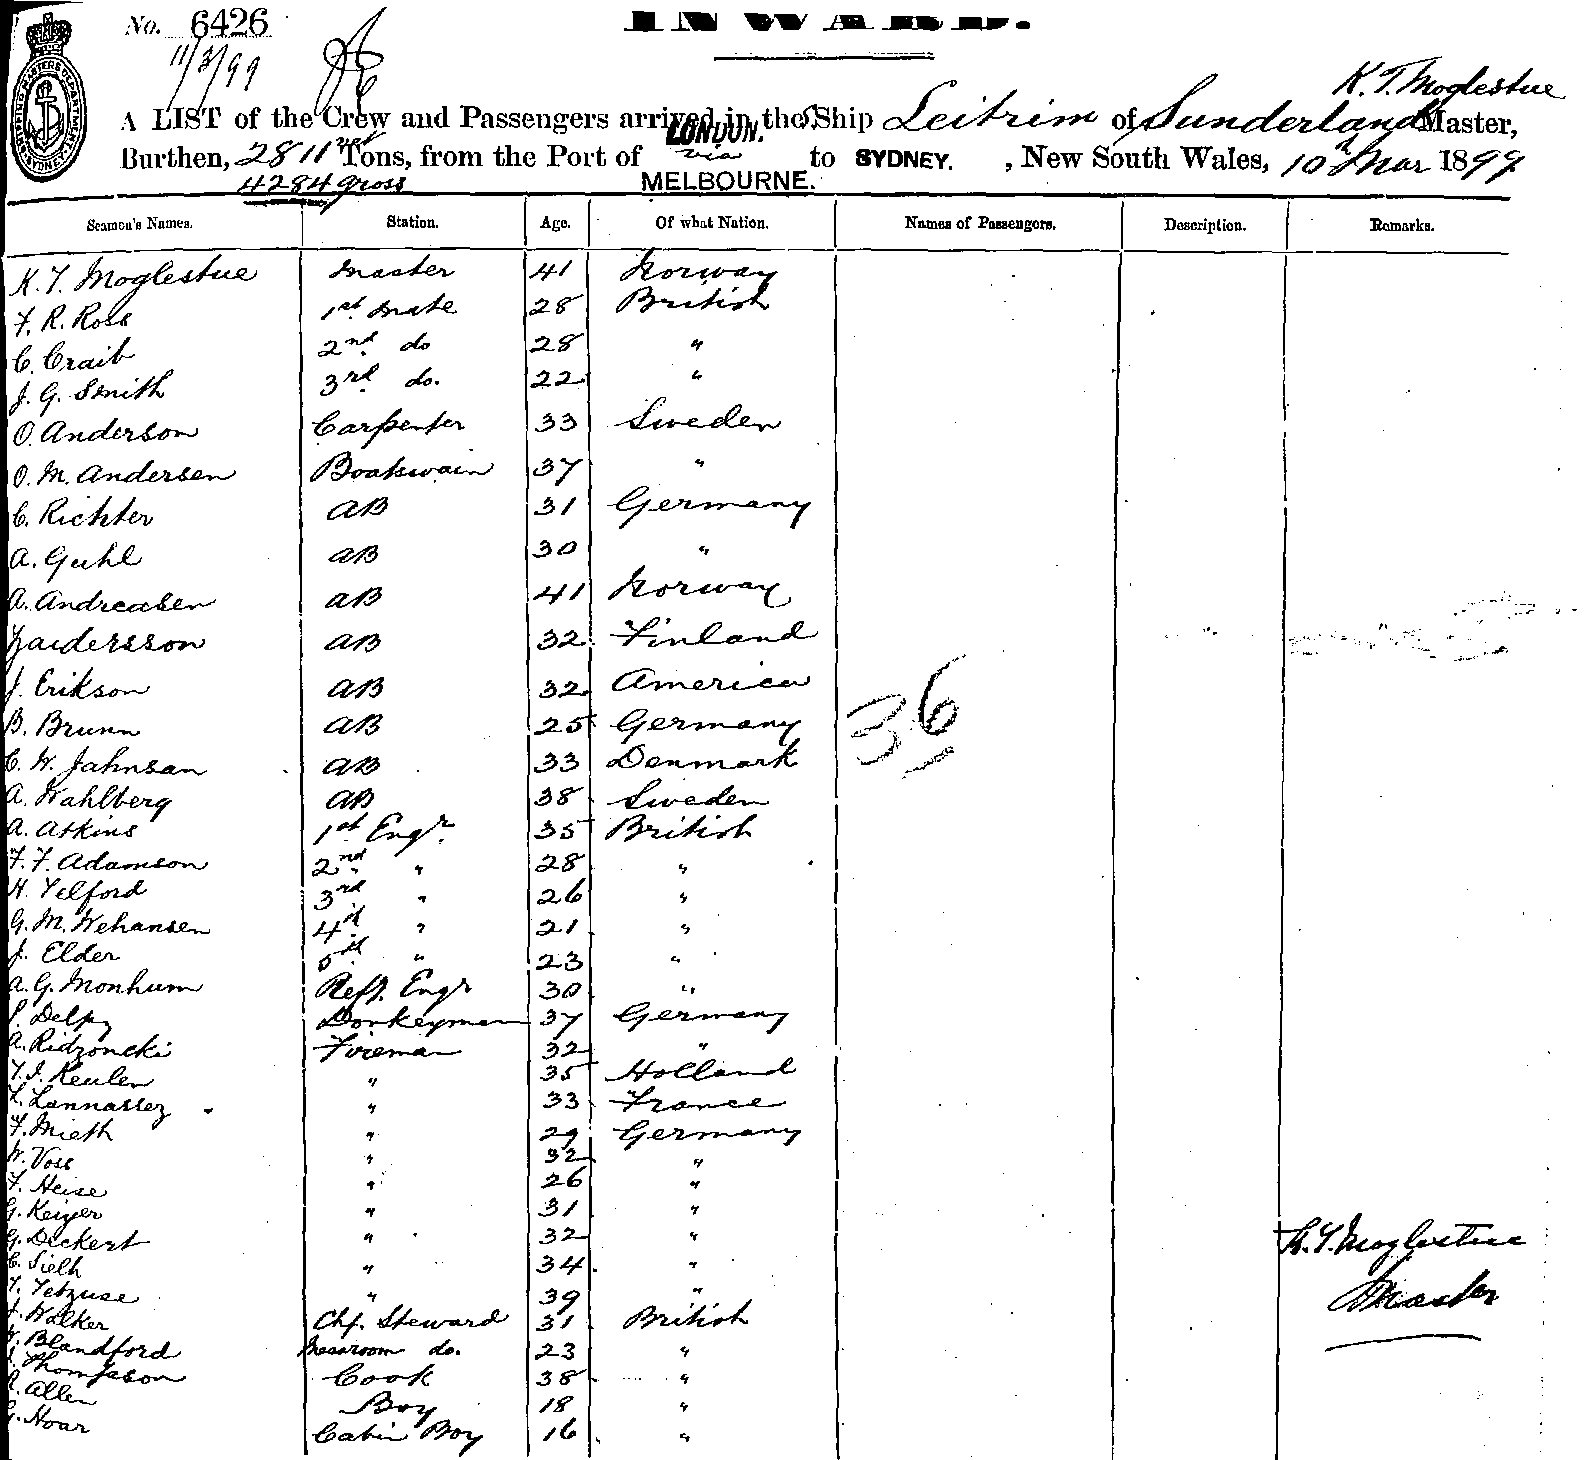 No. 6426
INWARD.
11/3/99
K. T. Moglestue
A LIST of the Crew and Passengers arrived in the S. Ship Leitrim of Sunderland Master,
Burthen, 2811 net Tons, from the Port of LONDON. via MELBOURNE. to SYDNEY. , New South Wales, 10th Mar 1899
4284 gross
Seamen's Names. Station. Age. Of what Nation. Names of Passengers. Description. Remarks.
K. T. Moglestue Master 41 Norway
F. R. Ross 1st Mate 28 British
C. Craib 2nd do 28 "
J. G. Smith 3rd do. 22 "
O. Anderson Carpenter 33 Sweden
O. M. Andersen Boatswain 37 "
C. Richter AB 31 Germany
A. Guhl AB 30 "
A. Andreasen AB 41 Norway
AB 32 Finland
J. Erikson AB 32 America
B. Brunn AB 25 Germany
C. W. Jahnsan AB 33 Denmark
A. Wahlberg AB 38 Sweden
A. Atkins 1st Engr. 35 British
F. F. Adamson 2nd " 28 "
H. Telford 3rd " 26 "
G. M. Wehansen 4th " 21 "
J. Elder 5th " 23 "
A. G. Monhum Refr. Engr 30 "
Delpy Donkeyman 37 Germany
A. Ridzoncki Fireman 32 "
T. J. Keulen " 35 Holland
L. Lannassez " 33 France
F. Mieth " 29 Germany
W. Voss " 32 "
F. Heise " 26 "
G. Keiger " 31 "
G. Deckert " 32 "
C. Sieth " 34 "
T. Tetzuse " 39 "
J. Walker Chf. Steward 31 British
W. Blandford Messroom do. 23 "
Thompson Cook 38 "
Allen Boy 18 "
G. Hoar Cabin Boy 16 "
36
K. T. Moglestue
Master